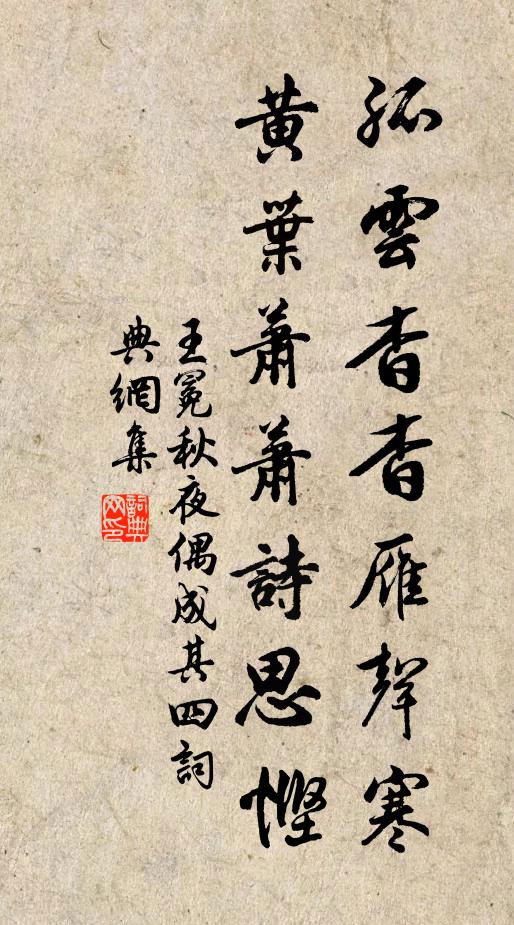 孤雲杳杳雁聲寒
黃葉蕭蕭詩思慳
王冕秋夜偶成其四詞
典網集
詞典網印